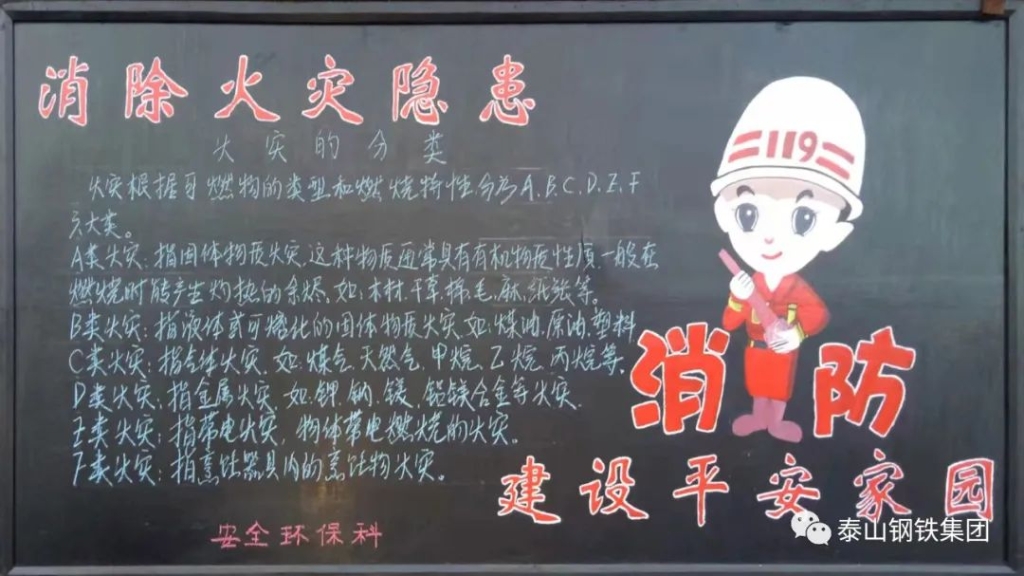 消除火灾隐患
火灾的分类
火灾根据可燃物的类型和燃烧特性分为A.B.C.D.E.F
六大类。
A类火灾:指固体物质火灾.这种物质通常具有有机物质性质一般在
燃烧时能产生灼热的余烬.如:木材.干草.棉.毛.麻.纸张等。
B类火灾:指液体或可熔化的固体物质火灾.如:煤油.原油.塑料
C类火灾:指气体火灾.如:煤气.天然气.甲烷.乙烷.丙烷等.
D类火灾:指金属火灾.如:钾.钠.镁.铝镁合金等火灾.
E类火灾:指带电火灾,物体带电燃烧的火灾。
F类火灾:指烹饪器具内的烹饪物火灾。
安全环保科
119
消防
建设平安家园
泰山钢铁集团